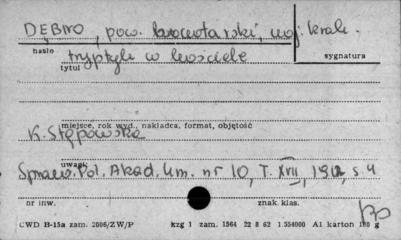 DĘBNO, pow. nowotarski, woj. krak.
hasło
sygnatura
tryptyk w kościele
tytuł
miejsce, rok wyd., nakładca, format, objętość
K. Stępowska
uwagi
Spraw. Pol. Akad. Um. nr 10, T. XVII, 1912, s. 4
nr inw. znak. klas.
CWD B-15a zam. 2006/ZW/P kzg 1 zam. 1564 22 8 62 1.554000 A1 karton 180 g